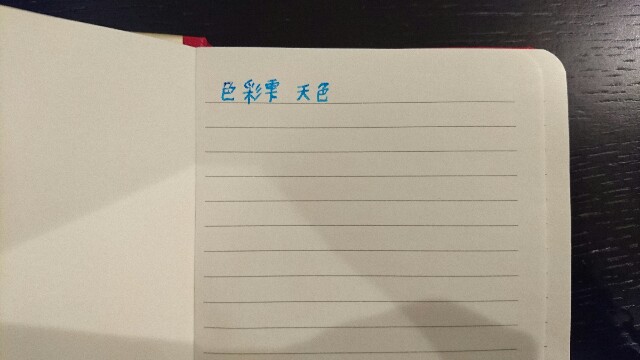 色彩雫 天色